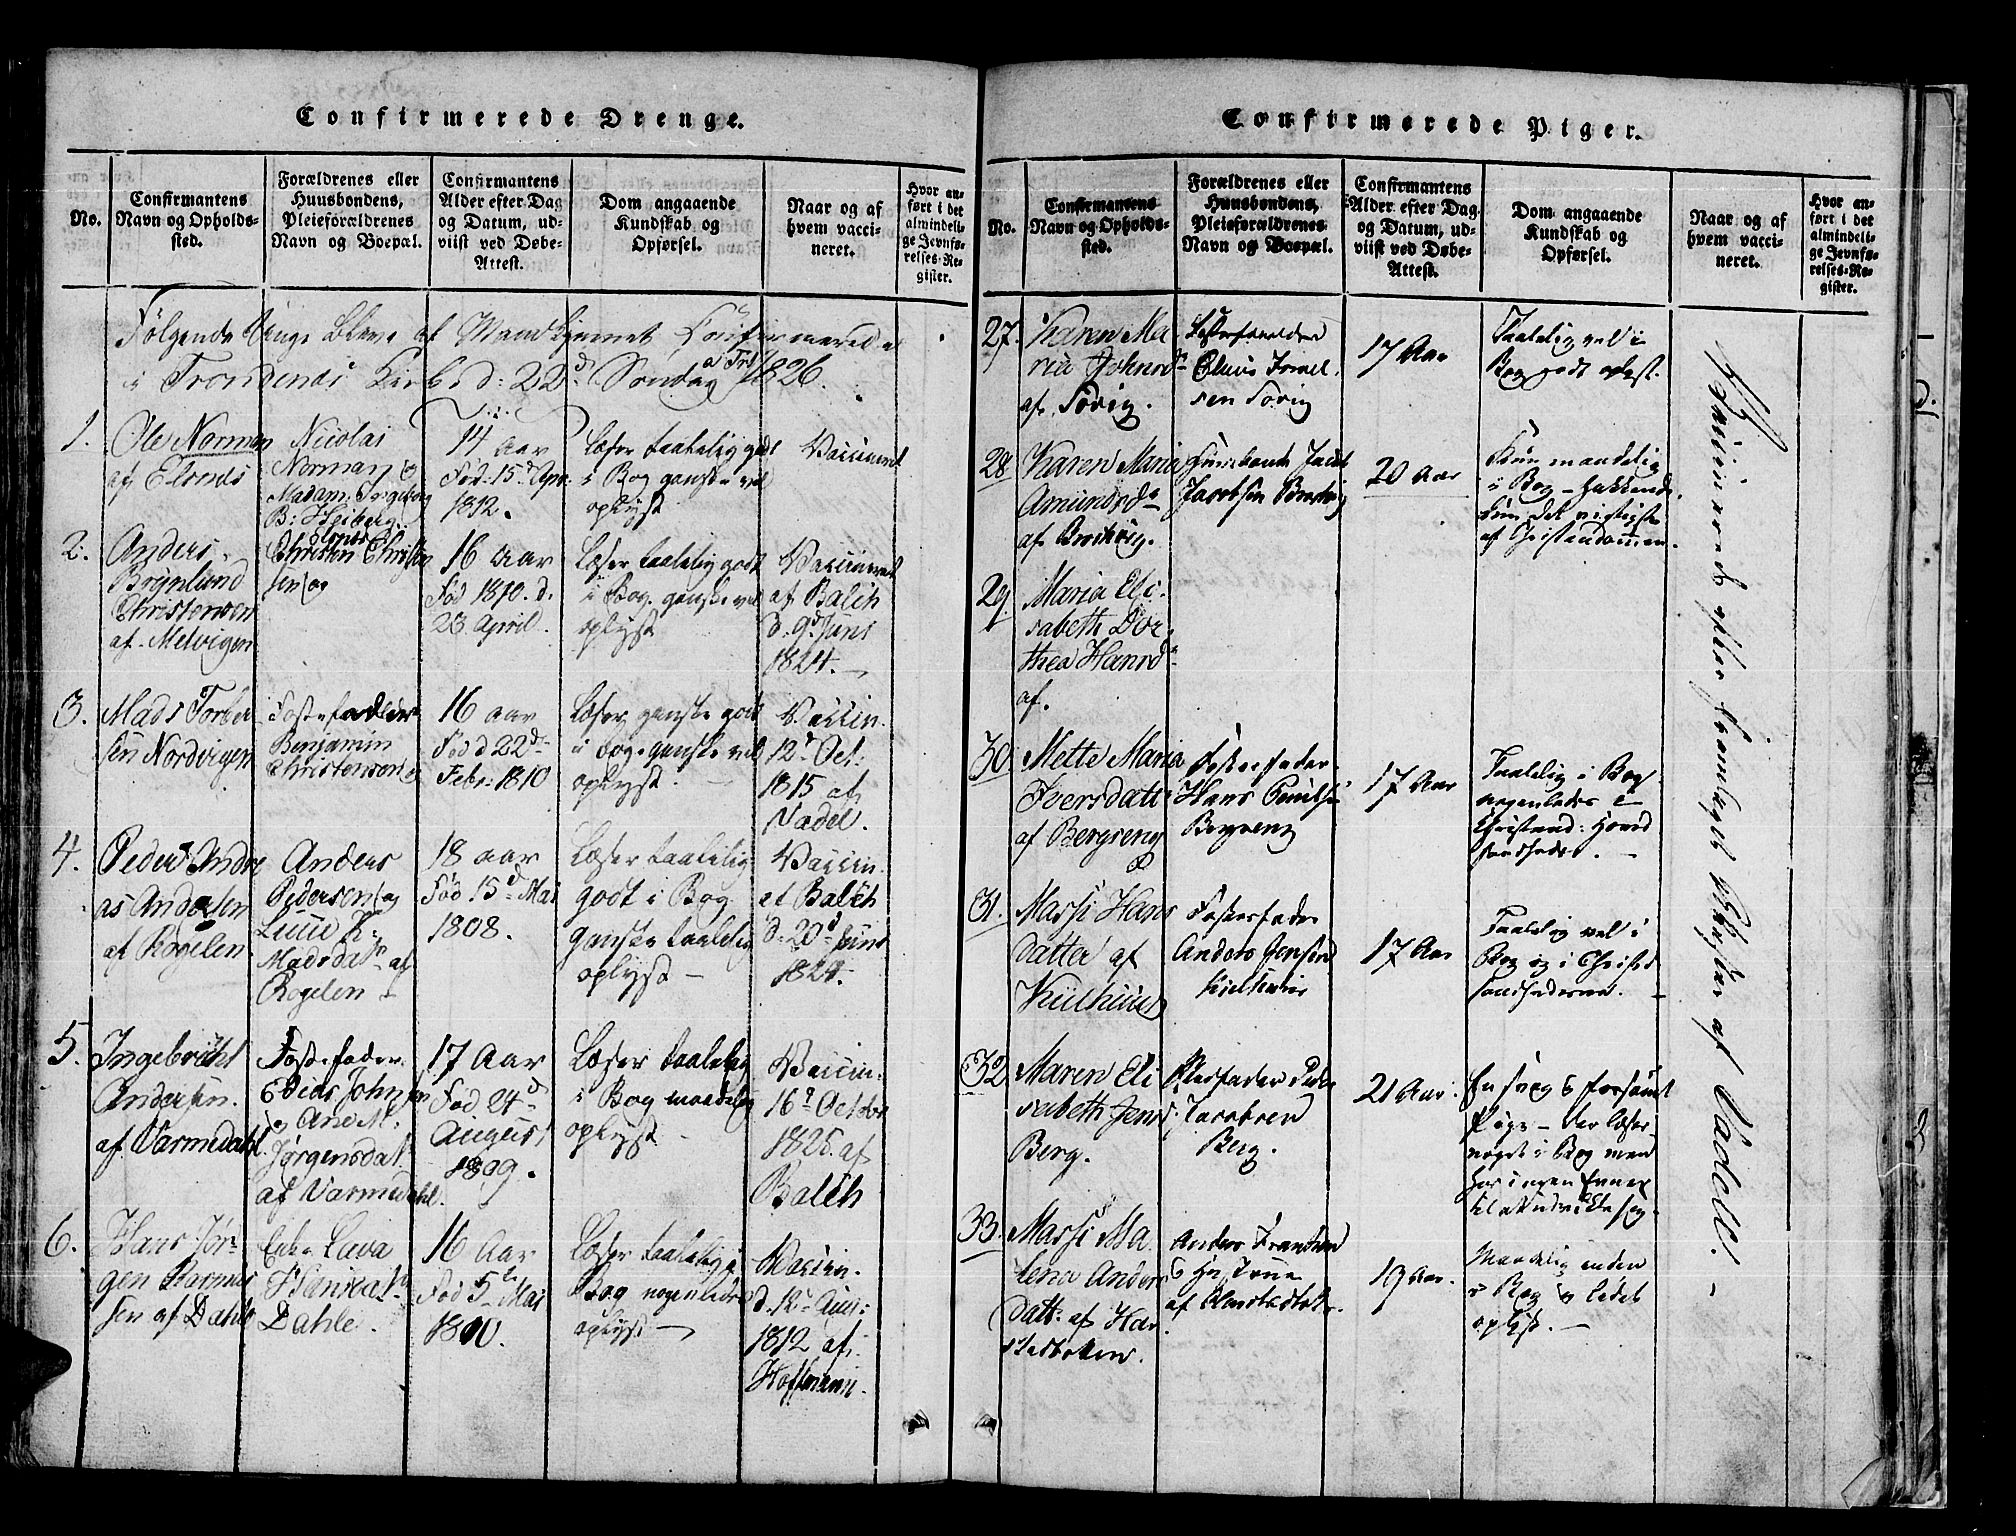 Confirmerede Drenge.
No.
Confirmantens
Navn og Opholds-
sted.
Forældrenes eller
Huusbondens,
Pleieforældrenes
Navn og Boepæl.
Confirmantens
Alder efter Dag
og Datum, ud-
viist ved Døbe-
Attest.
Dom angaaende
Kundskab og
Opførsel.
Naar og af
hvem vacci-
neret.
Hvor an-
ført i det
almindeli-
ge Jevnfø-
relses-Re-
gister.
Følgende Unge bleve af Mandkjønnet Confirmerede
i Trondenæs Kirke d: 22d Søndag a Tri 1826.
1.
Ole Norman
af Elsnæs
Nicolai
Norman og
Madam Ingeborg
B: Heiberg
Elsnes
14 Aar
Fød 15d Apr.
1812.
Læser taalelig godt
i Bog ganske vel
oplyst
Vaccineret
2.
Anders
Brynlund
Christensen
af Melvigen
Christen Christen
sen og
16 Aar
Fød 1810. d.
23 April.
Læser taalelig godt
i Bog. ganske vel
oplyst
Vaccineret
af Balch
d. 9d Juni
1824.
3.
Mads Torber
sen Nordvigen
Fosterfader
Benjamin
Christensen
16 Aar
Fød d 22d
Febr: 1810
Læser ganske godt
i Bog ganske vel
oplyst.
Vaccin.
12d Oct:
1815 af
Nadel.
4.
Peder Andre
as Andersen
af Rogelen
Anders
Pedersen og
Lucie K:
Madsdatr af
Rogelen
18 Aar
Fød 15d Mai
1808.
Læser taalelig
godt i Bog
ganske taalelig
oplyst
Vaccin.
af Balch
d. 20d Juni
1824.
5.
Ingebricht
Andersen
af Varmedahl
Fosterfader
Edeias Johnsen
og Ane M:
Jørgensdatr
af Varmedahl.
17 Aar
Fød 24d
August
1809.
Læser taalelig
i Bog maadelig
oplyst
Vaccin.
16d Octobr
1825. af
Balch
6.
Hans Jør
gen Rasmus
sen af Dahle
Enke Lava
Hansdatr
Dahle.
16 Aar
Fød 5te Mai
1810.
Læser taalelig i
Bog nogenledes
oplyst
Vaccin.
d. 12d Aug:
1812 af
Hoffmann.
Confirmerede Piger.
No.
Confirmantens
Navn og Opholds-
sted.
Forældrenes eller
Huusbondens,
Pleieforældrenes
Navn og Boepæl.
Confirmantens
Alder efter Dag
og Datum, ud-
viist ved Døbe-
Attest.
Dom angaaende
Kundskab og
Opførsel.
Naar og af
hvem vacci-
neret.
Hvor an-
ført i det
almindeli-
ge Jevnfø-
relses-Re-
gister.
27.
Karen Ma
ria Johnsd
af Sørvig.
Fosterforældre
Elias Isrel
sen Sørvig
17 Aar
Taalelig vel i
Bog godt oplyst.
28
Karen Maria
Amundsdr
af Brokvig.
Huusbonde Jacob
Jacobsen Brokvig
20 Aar
Kun maadelig
i Bog
kun det vigtigste
af Christendommen.
29
Maria Eli
sabeth Dor
thea Hansdr
af.
30
Mette Maria
Iversdatt
af Bergseng
Fosterfader
Hans Poulsen
Bergseng
17 Aar
Taalelig i Bog
nogenledes i
Christend: Hoved
sandheder.
31.
Massi Hans
datter af
Kiilhuus
Fosterfader
Anders Jensen
Kiilhuus
17 Aar
Taalelig vel i
Bog og i Christend
sandhederne.
32
Maren Eli
sabeth Jensd
Berg.
Pleiefader Peder
Jacobsen
Berg.
21 Aar.
En svag og forsømt
Pige - der læser
noget i Bog men
har ingen Evner
til at udvikle sig.
33.
Massi Ma
lena Anders
datt. af Har
stadbotten.
Anders Frantsen
og Hustrue
af
19 Aar.
Maadelig inden
i Bog og ledet
oplyst.
Vaccinerede efter fremlagde Attester af Nadel.